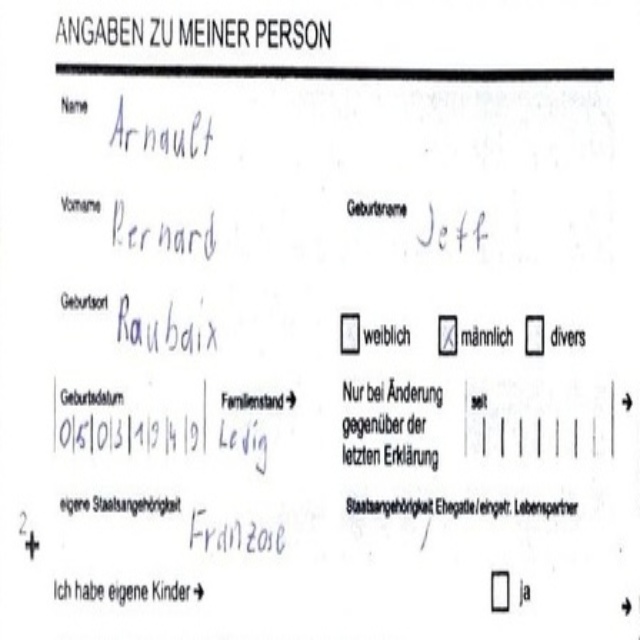 ANGABEN ZU MEINER PERSON
Name Arnault
Vorname Bernard Geburtsname Jeff
Geburtsort Raubaix
weiblich männlich divers
Geburtsdatum 05031949 Familienstand → Ledig
Nur bei Änderung
gegenüber der
letzten Erklärung
seit →
eigene Staatsangehörigkeit Franzose
Staatsangehörigkeit Ehegatte/eingetr. Lebenspartner /
2
+
Ich habe eigene Kinder → ja →